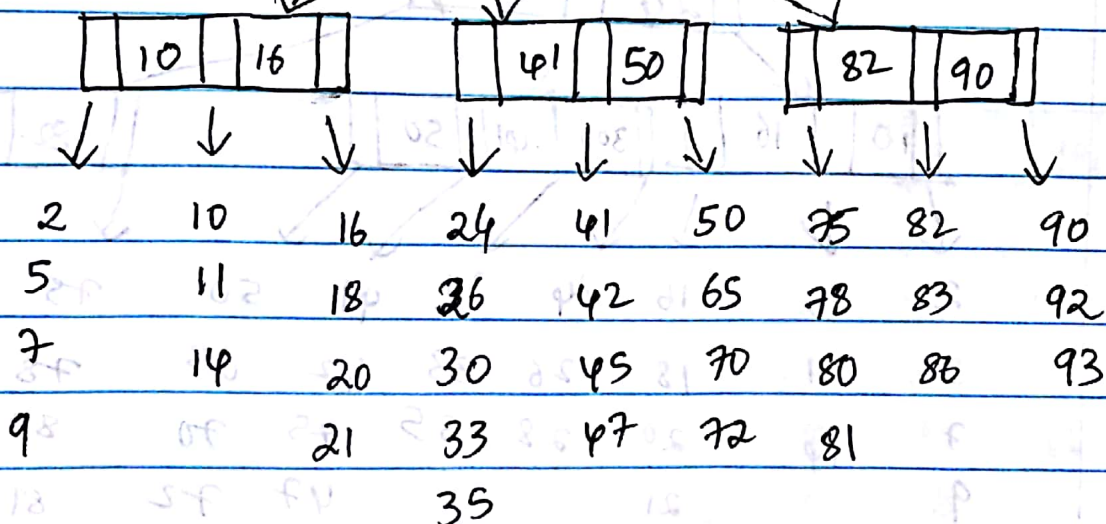 10 16 41 50 82 90
2 10 16 24 41 50 75 82 90
5 11 18 26 42 65 78 83 92
7 14 20 30 45 70 80 86 93
9 21 33 47 72 81
35